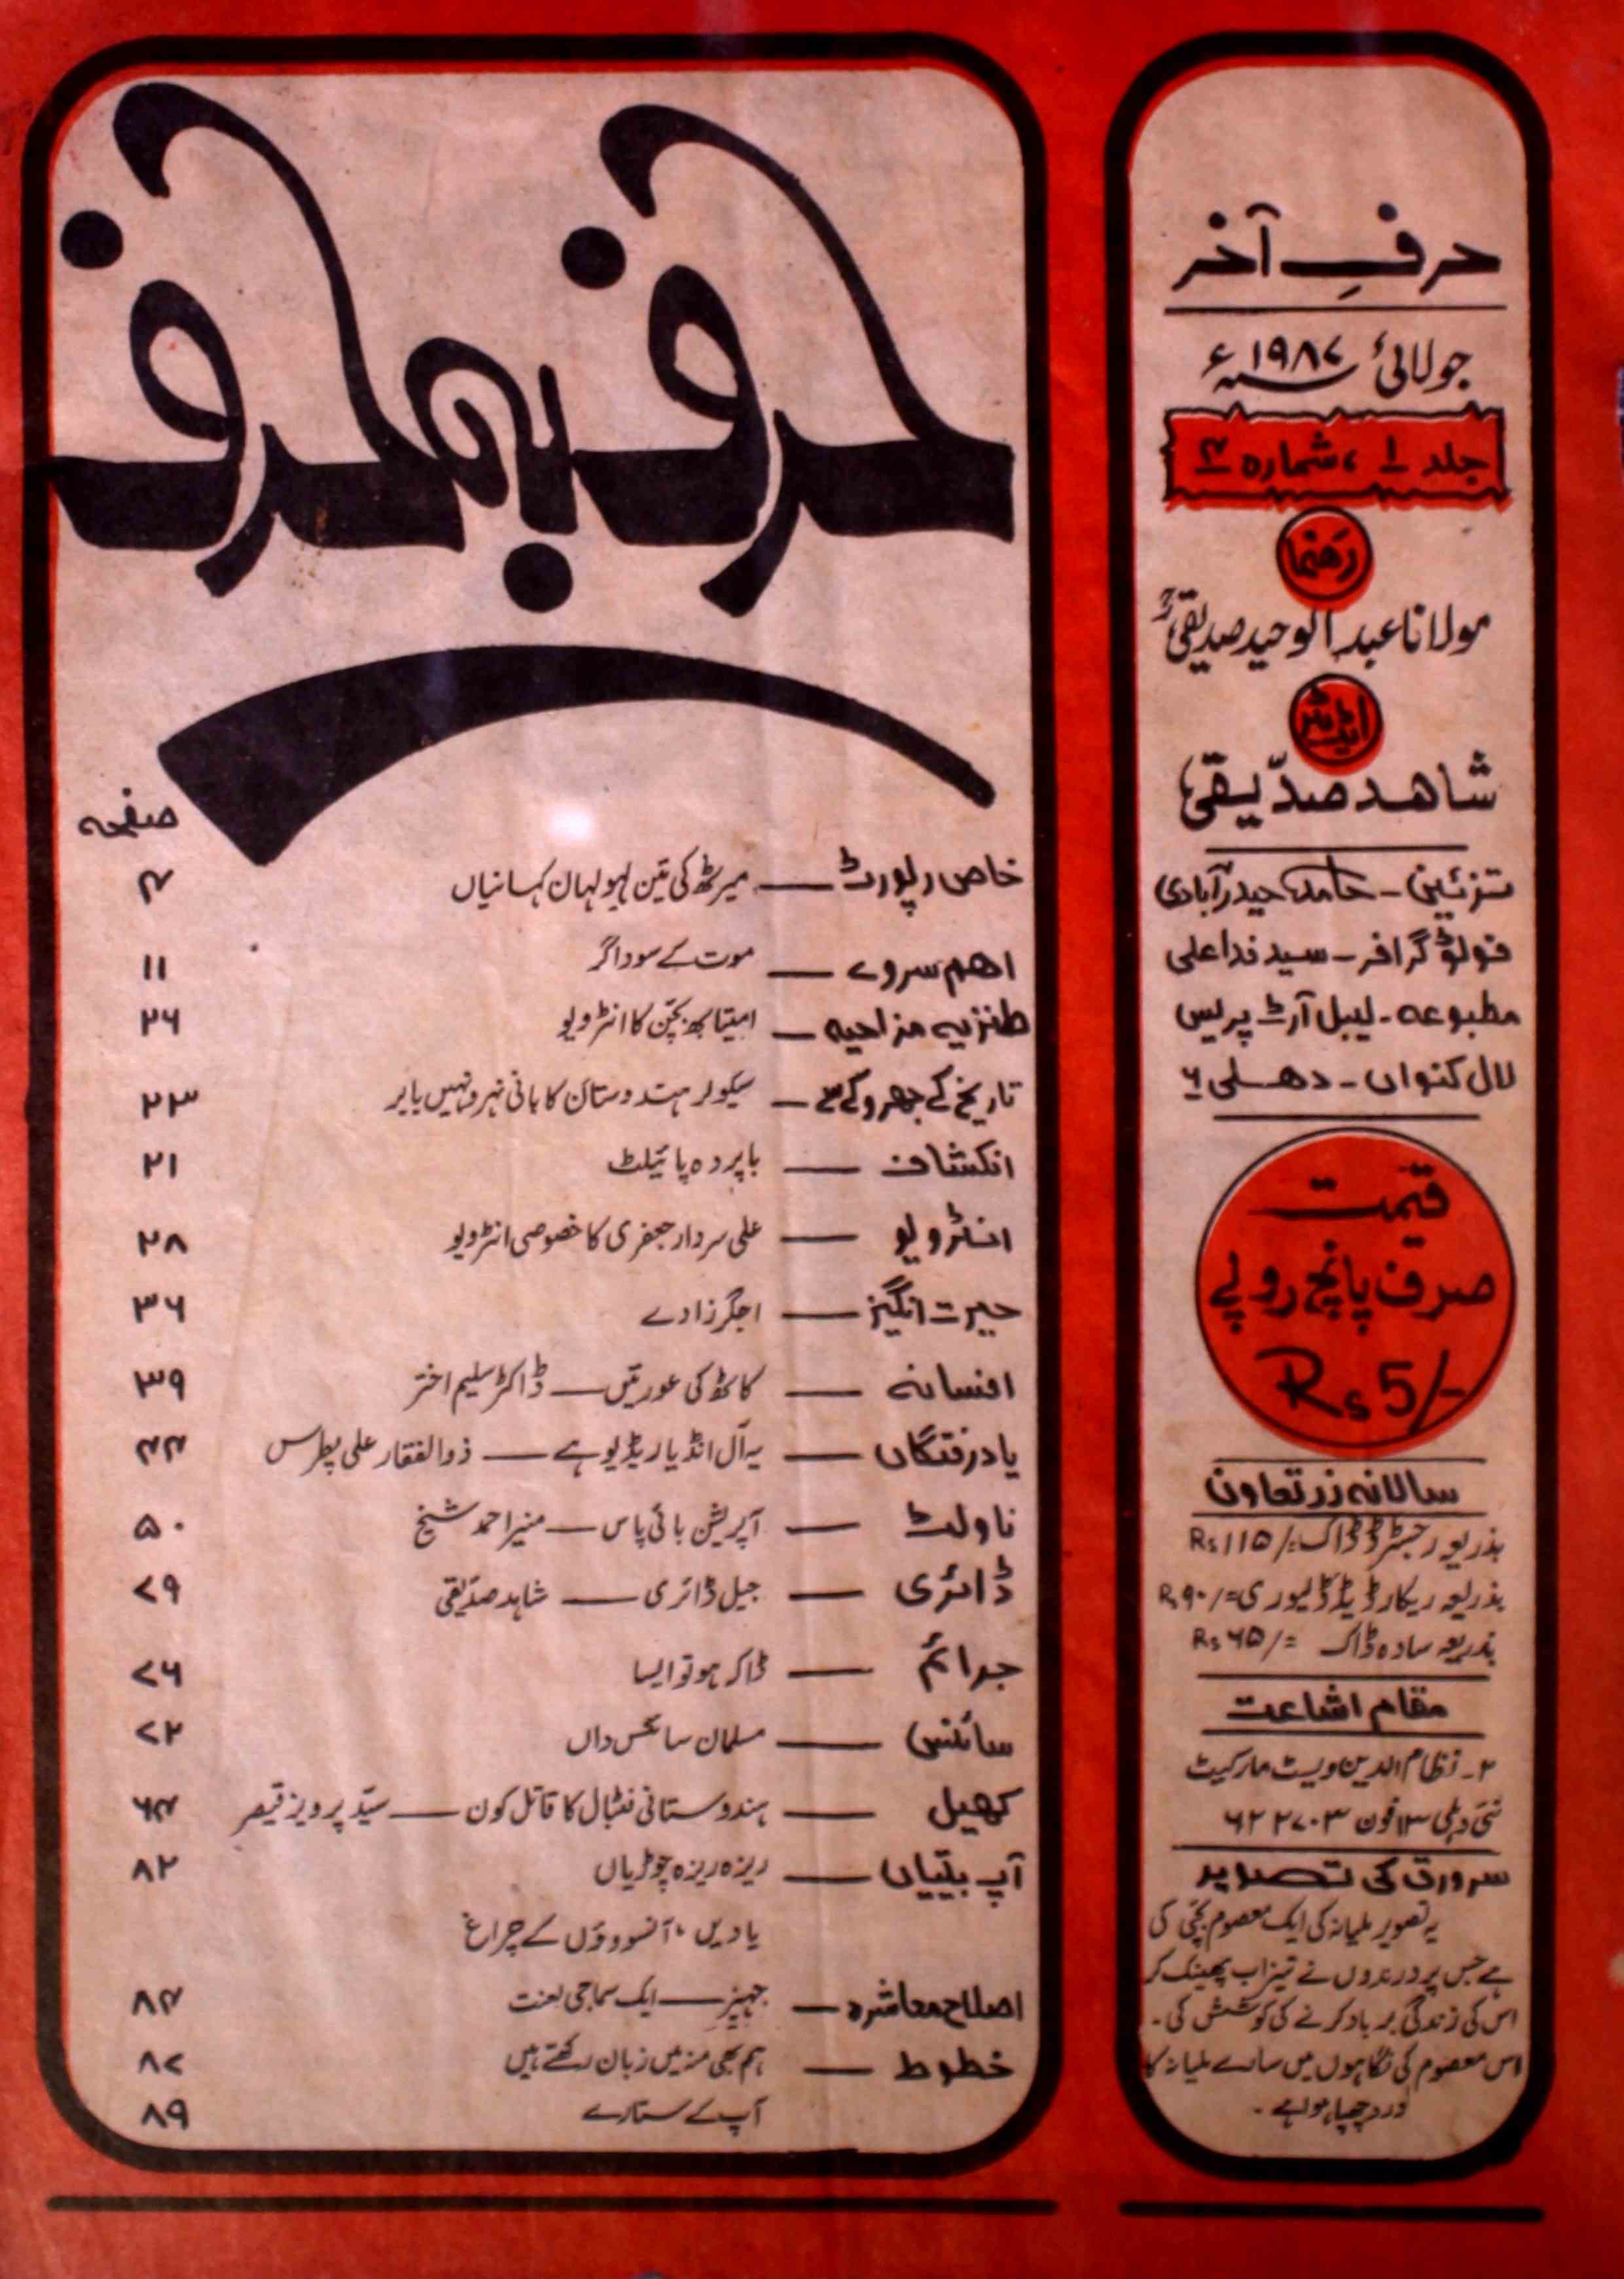 حرفِ آخر
جولائی ۱۹۸۷ء
جلد ۱، شمارہ ۴
رہنما
مولانا عبدالوحید صدیقیؒ
ایڈیٹر
شاہد صدّیقی
تزئین - حامد حیدرآبادی
فوٹوگرافر - سید فدا علی
مطبوعہ - لیبل آرٹ پریس
لال کنواں - دھلی ۶
قیمت
صرف پانچ روپے
Rs 5/-
سالانہ زر تعاون
بذریعہ رجسٹرڈ ڈاک =/Rs ۱۱۵
بذریعہ ریکارڈیڈ ڈلیوری =/Rs ۹۰
بذریعہ سادہ ڈاک =/Rs ۶۵
مقام اشاعت
۲- نظام الدین ویسٹ مارکیٹ
نئی دہلی ۱۳ فون ۶۲۲۷۰۳
سرورق کی تصویر
یہ تصویر ملیانہ کی ایک معصوم بچّی کی
ہے جس پر درندوں نے تیزاب پھینک کر
اس کی زندگی برباد کرنے کی کوشش کی۔
اس معصوم کی نگاہوں میں سارے ملیانہ کا
درد چھپا ہوا ہے۔
حرف بہ حرف
صفحہ
خاص رپورٹ — میرٹھ کی تین لہولہان کہانیاں ۴
اھم سروے — موت کے سوداگر ۱۱
طنزیہ مزاحیہ — امیتابھ بچّن کا انٹرویو ۲۶
تاریخ کے جھروکے سے — سیکولر ہندوستان کا بانی نہرو نہیں بابر ۲۳
انکشاف — باپردہ پائیلٹ ۲۱
انٹرویو — علی سردار جعفری کا خصوصی انٹرویو ۲۸
حیرت انگیز — اجگرزادے ۳۶
افسانہ — کاٹھ کی عورتیں — ڈاکٹر سلیم اختر ۳۹
یاد رفتگاں — یہ آل انڈیا ریڈیو ہے — ذوالفقار علی پطرس ۴۴
ناولٹ — آپریشن بائی پاس — منیر احمد شیخ ۵۰
ڈائری — جیل ڈائری — شاہد صدّیقی ۷۹
جرائم — ڈاکہ ہو تو ایسا ۷۶
سائنس — مسلمان سائنس داں ۷۲
کھیل — ہندوستانی فٹبال کا قاتل کون — سیّد پرویز قیصر ۶۴
آپ بیتیاں — ریزہ ریزہ چوڑیاں ۸۲
یادیں، آنسوؤں کے چراغ
اصلاح معاشرہ — جہیز — ایک سماجی لعنت ۸۴
خطوط — ہم بھی منہ میں زبان رکھتے ہیں ۸۷
آپ کے ستارے ۸۹